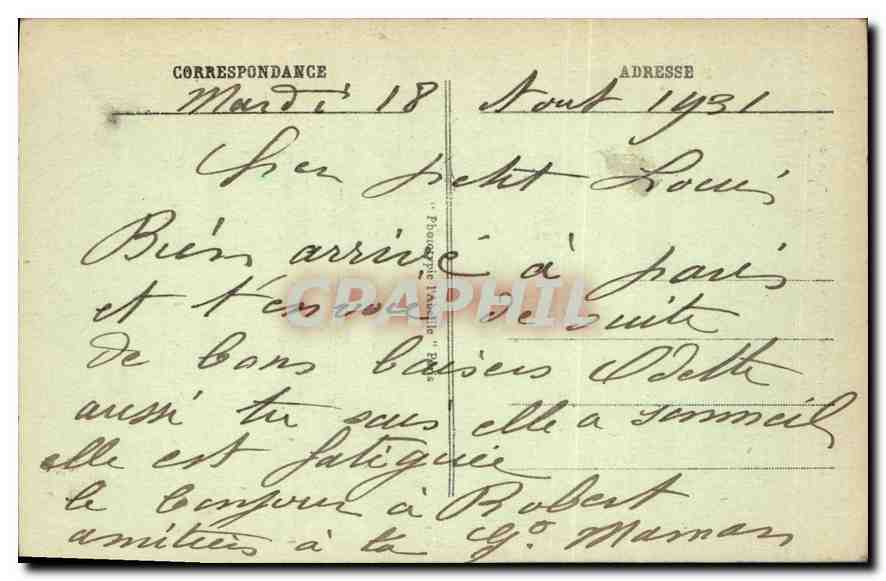 CORRESPONDANCE
ADRESSE
Mardi 18 Aout 1931
Cher petit Louis
Bien arrivé à paris
et t'envoie de suite
de bons baisers Odette
aussi tu sais elle a sommeil
elle est fatiguée
le bonjour à Robert
amitiés à ta Gd Maman
" Phototypie l'Abeille " Paris
CPAPHIL